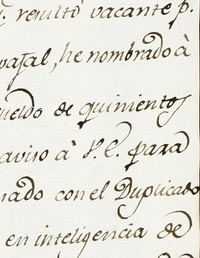 resultó vacante p.
vajal, he nombrado à
ueldo de quinientos
aviso à V. E. para
nado con el Duplicado
en inteligencia de